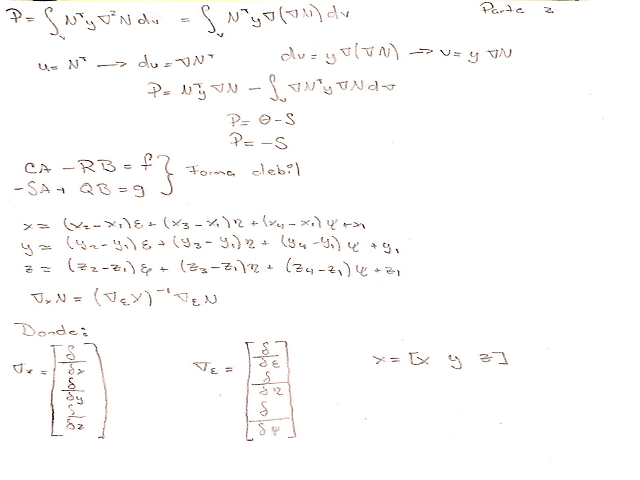 Parte 2
P = ∫_v Nᵀ y ∇²N dv = ∫_v Nᵀ y ∇(∇N) dv
u = Nᵀ → du = ∇Nᵀ dv = y ∇(∇N) → v = y ∇N
P = Nᵀ y ∇N - ∫_v ∇Nᵀ y ∇N dv
P = θ - S
P = -S
CA - RB = f } Forma debil
-SA + QB = g
x = (x₂-x₁)ε + (x₃-x₁)η + (x₄-x₁)ψ + x₁
y = (y₂-y₁)ε + (y₃-y₁)η + (y₄-y₁)ψ + y₁
z = (z₂-z₁)ε + (z₃-z₁)η + (z₄-z₁)ψ + z₁
∇ₓN = (∇_εX)⁻¹ ∇_εN
Donde:
∇ₓ = [δ/δx δ/δy δ/δz] ∇_ε = [δ/δε δ/δη δ/δψ] x = [x y z]